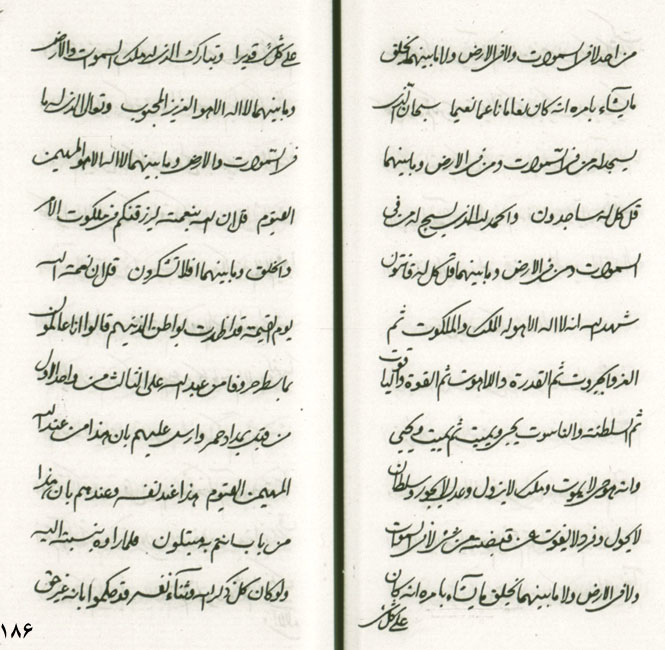 من احد لا في السموات ولا في الارض ولا ما بينهما يخلق
ما يشاء بامره انه كان نفاعا ناعما نعيما سبحان الذي
يسجد له من في السموات ومن في الارض وما بينهما
قل كل له ساجدون والحمد لله الذي يسبح له من في
السموات ومن في الارض وما بينهما قل كل له قانتون
شهد الله انه لا اله الا هو له الملك والملكوت ثم
العز والجبروت ثم القدرة واللاهوت ثم القوة والياقوت
ثم السلطنة والناسوت يحيي ويميت ثم يميت ويحيي
وانه هو حي لا يموت وملك لا يزول وعدل لا يجور وسلطان
لا يحول وفرد لا يفوت عن قبضته من شئ لا في السموات
ولا في الارض ولا ما بينهما يخلق ما يشاء بامره انه كان
على كل شئ
على كل شئ قديرا وتبارك الذي له ملك السموات والارض
وما بينهما لا اله الا هو العزيز المحبوب وتعالى الذي له ما
في السموات والارض وما بينهما لا اله الا هو المهيمن
القيوم قل ان الله بنعمته ليرزقنكم من ملكوت الامر
والخلق وما بينهما افلا تشكرون قل ان نعمة الله
يوم القيمة قد اظهرت بواطن الذينهم قالوا انا عالمون
بما سطر حروفا من عبد الله على الثالث من واحد الاول
من قبل بمداد حمر وارسل عليهم بان هذا من عند الله
المهيمن القيوم هذا عند نفسه وعندهم بان هذا
من باب انتم به مبتلون فلما راوه بنسبته اليه
ولو كان كل ذكر الله وثناء نفسه قد حكموا بانه غير حق
١٨۶